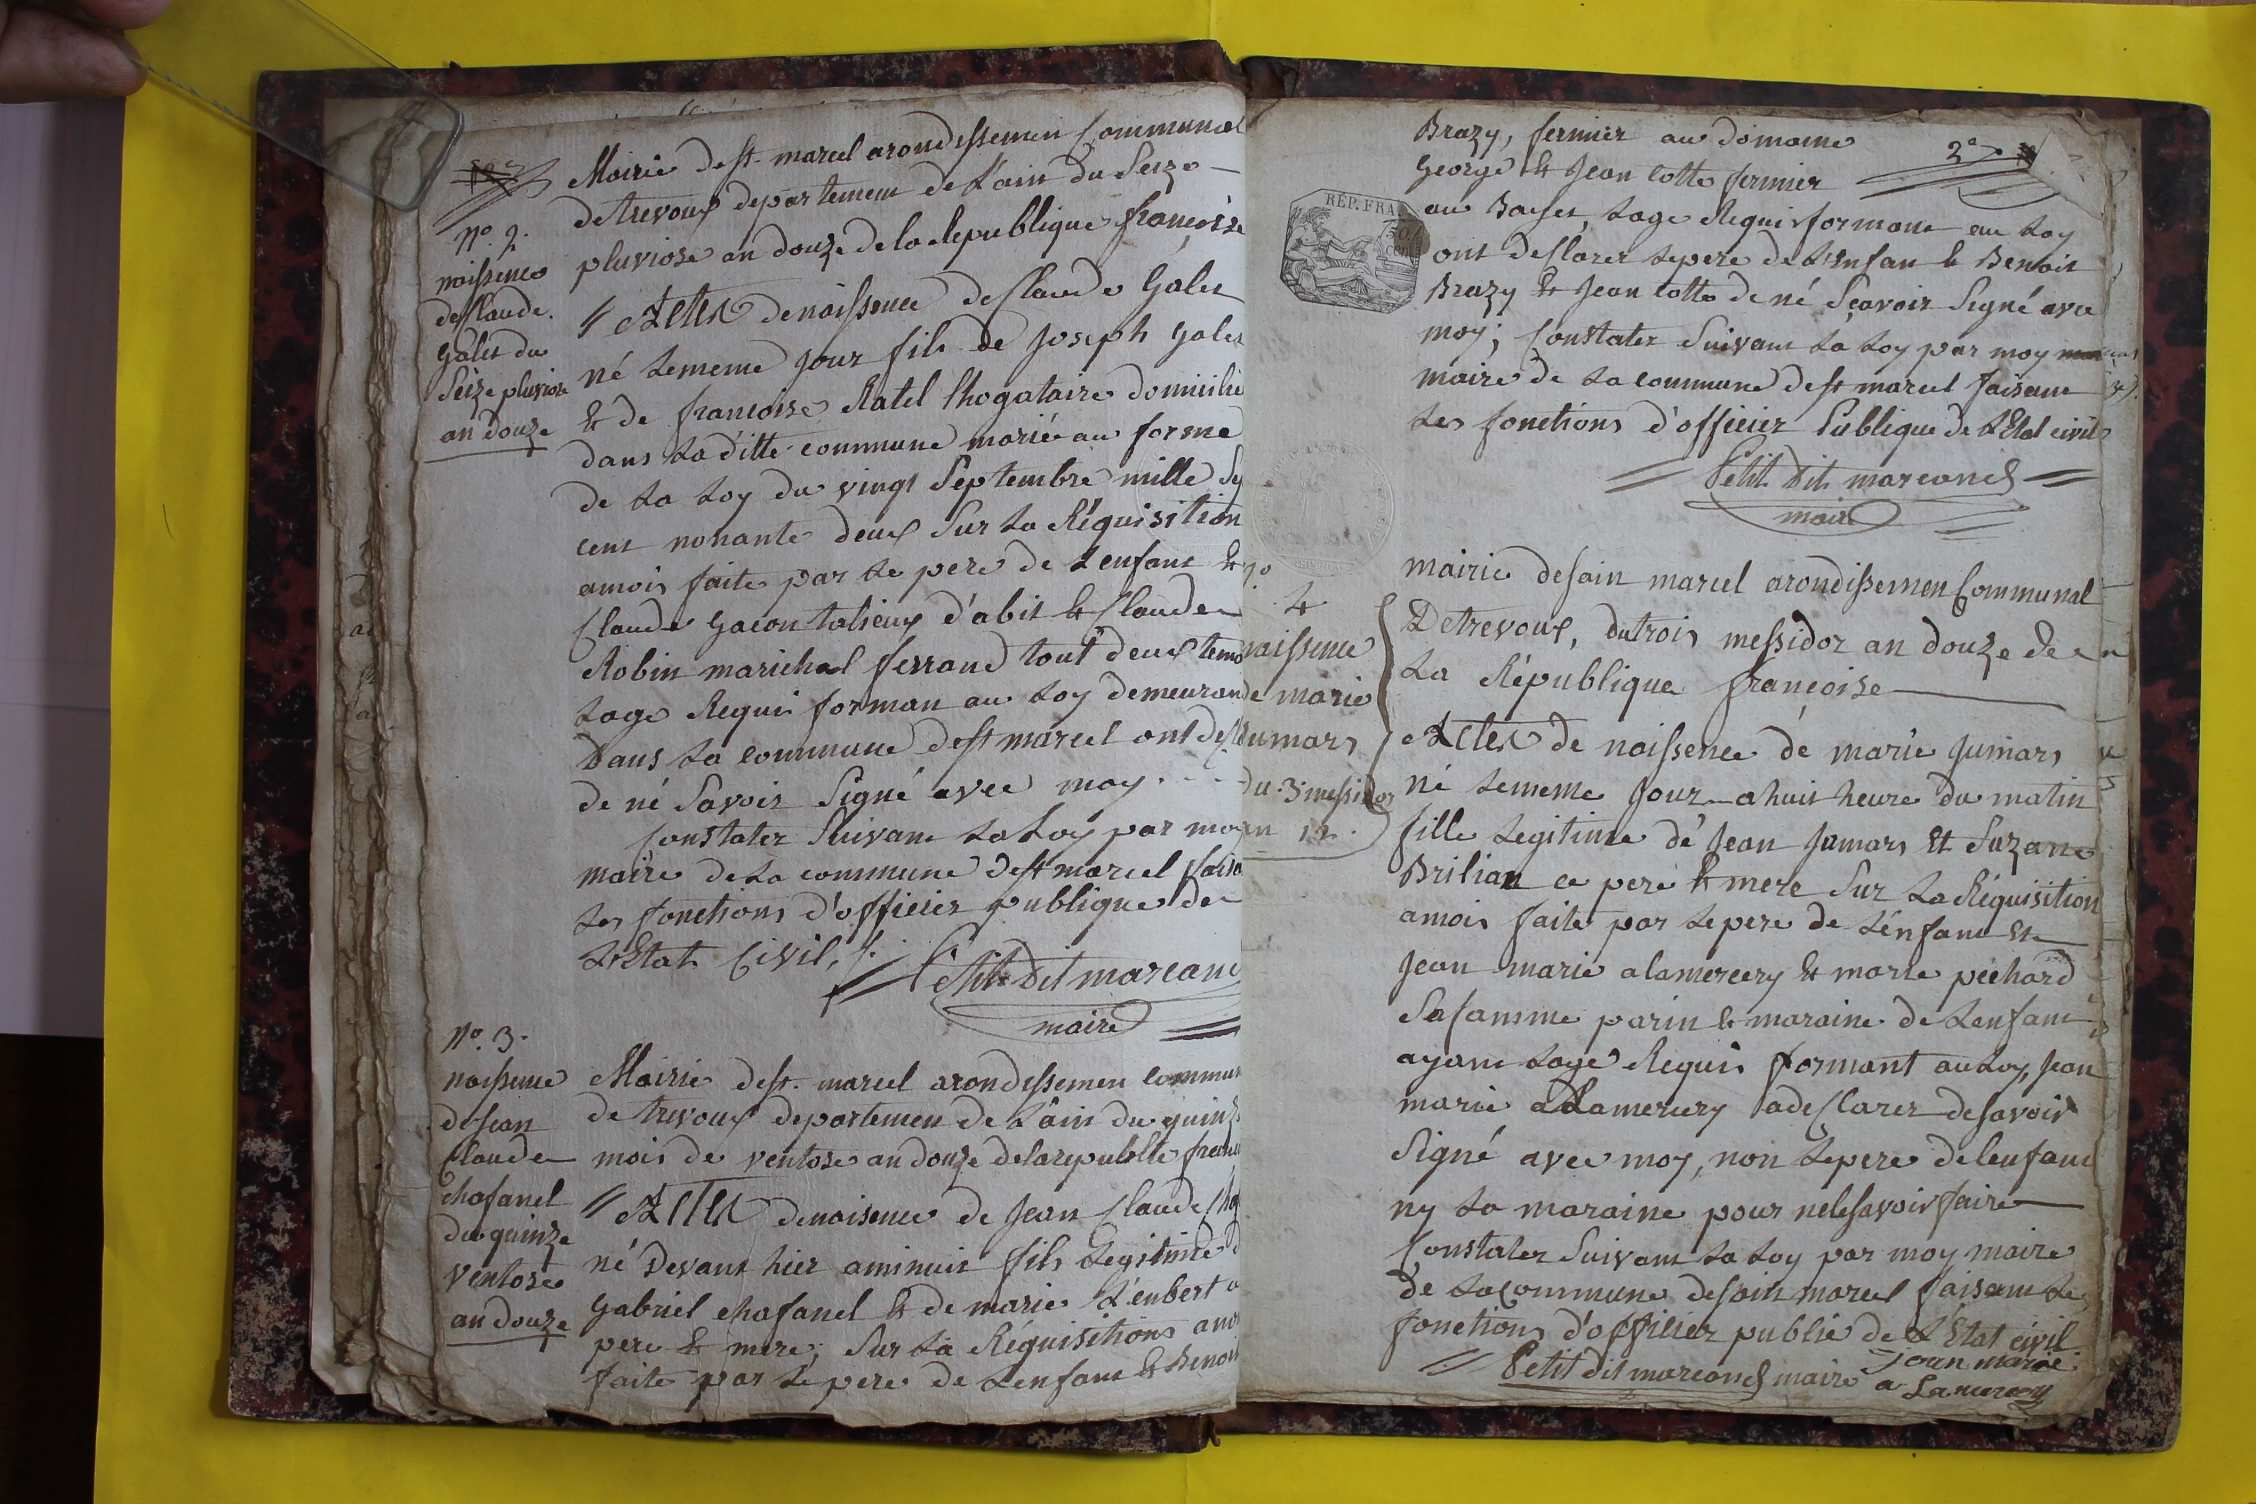 N.o 2.
naissence
de Claude.
Galet du
Seize pluviose
an douze
Mairie de st. marcel arondissemen Communal
de trevoux departement de Lain du Seize
pluviose an douze de la Republique françoise
Actes de naissence de Claude Galet
né Lememe jour fils de Joseph Galet
et de francoise Ratel domicilié
dans La ditte commune marié au forme
de La Loy du vingt Septembre mille Sep
cent nonante deux Sur La Réquisition
amois faite par Le pere de L'enfant et
Claude Gacon talieux d'abit et Claude
Robin marichal ferrand tout deux temo
Lage Requi forman au Loy demeuran
Dans La commune de st marcel ont
de né Savoir Signé avec moy.
Constater Suivant La Loy par moy
maire de La commune de st marcel faisa
Les fonctions d'officier publique de
L'Etat Civil,
Petit Dit marcand
maire
N.o 3.
naissence
de jean
Claude
chafanel
du quinze
ventose
an douze
Mairie de st. marcel arondissemen commun
de trevoux departemen de L'ain du quinze
mois de ventose an douze de la republique
Actes de naisence de Jean Claude
né Devant hier aminuit fils Legitime d
Gabriel chafanel et de marie
pere et mere; Sur La Réquisitions amoi
faite par Le pere de Lenfant et Benoit
2e
Brazy, fermier au domaine
George et Jean Cotte fermier
au Lage Requis formant au Loy
ont desClarer Lepere de L'Enfan et Benoit
Brazy et Jean Cotte de né Scavoir Signé avec
moy; Constater Suivant La Loy par moy
maire de La commune de st marcel faisant
Les fonctions d'officier Publique de L'Etat civil
Petit Dit marcand
maire
RÉP. FRA
50
CEN
4
naissence
de marie
Jumars
du. 3 messidor
an 12.
mairie de sain marcel arondissemen Communal
De trevoux, du trois messidor an douze de
La République françoise
Actes de naissence de marie Jumars
né Lememe Jour a huit heure du matin
fille Legitime de Jean Jumars Et Suzane
Brilian ce pere et mere Sur La Réquisition
amois faite par Lepere de L'énfant Et
Jean marie alamercery et marie pechard
Safamme parin et maraine de Lenfant
ayant Lage Requis formant au Loy, Jean
marie aLamercery adesClarer desavoir
Signé avec moy, non Lepere delenfant
ny La maraine pour nelesavoir faire
Constater Suivant La Loy par moy maire
de La Commune de sain marcel faisant Les
fonctions d'officier public de L'Etat civil
Petit dit marcand maire
jean marie
a Lamercery